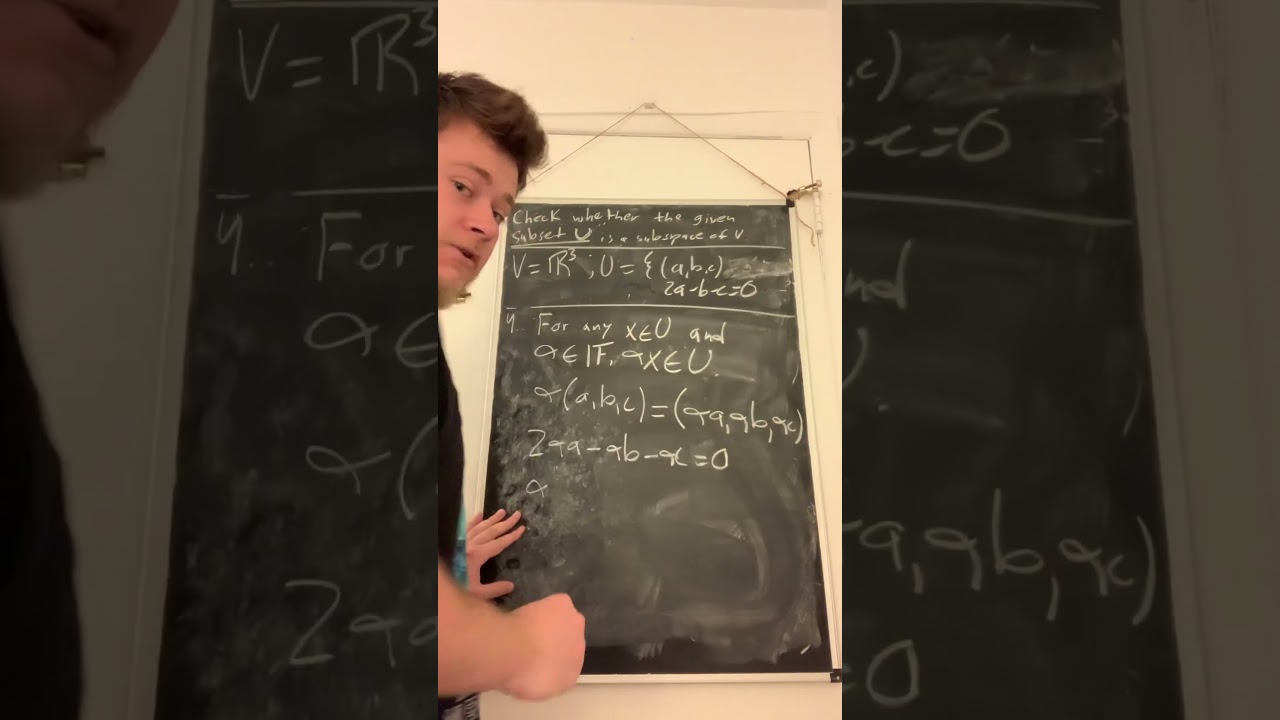 Check whether the given
subset U is a subspace of V.
V=ℝ³; U = {(a,b,c)
2a-b-c=0
For any x∈U and
α∈𝔽, αx∈U.
α(a,b,c)=(αa,αb,αc)
2αa-αb-αc=0
α